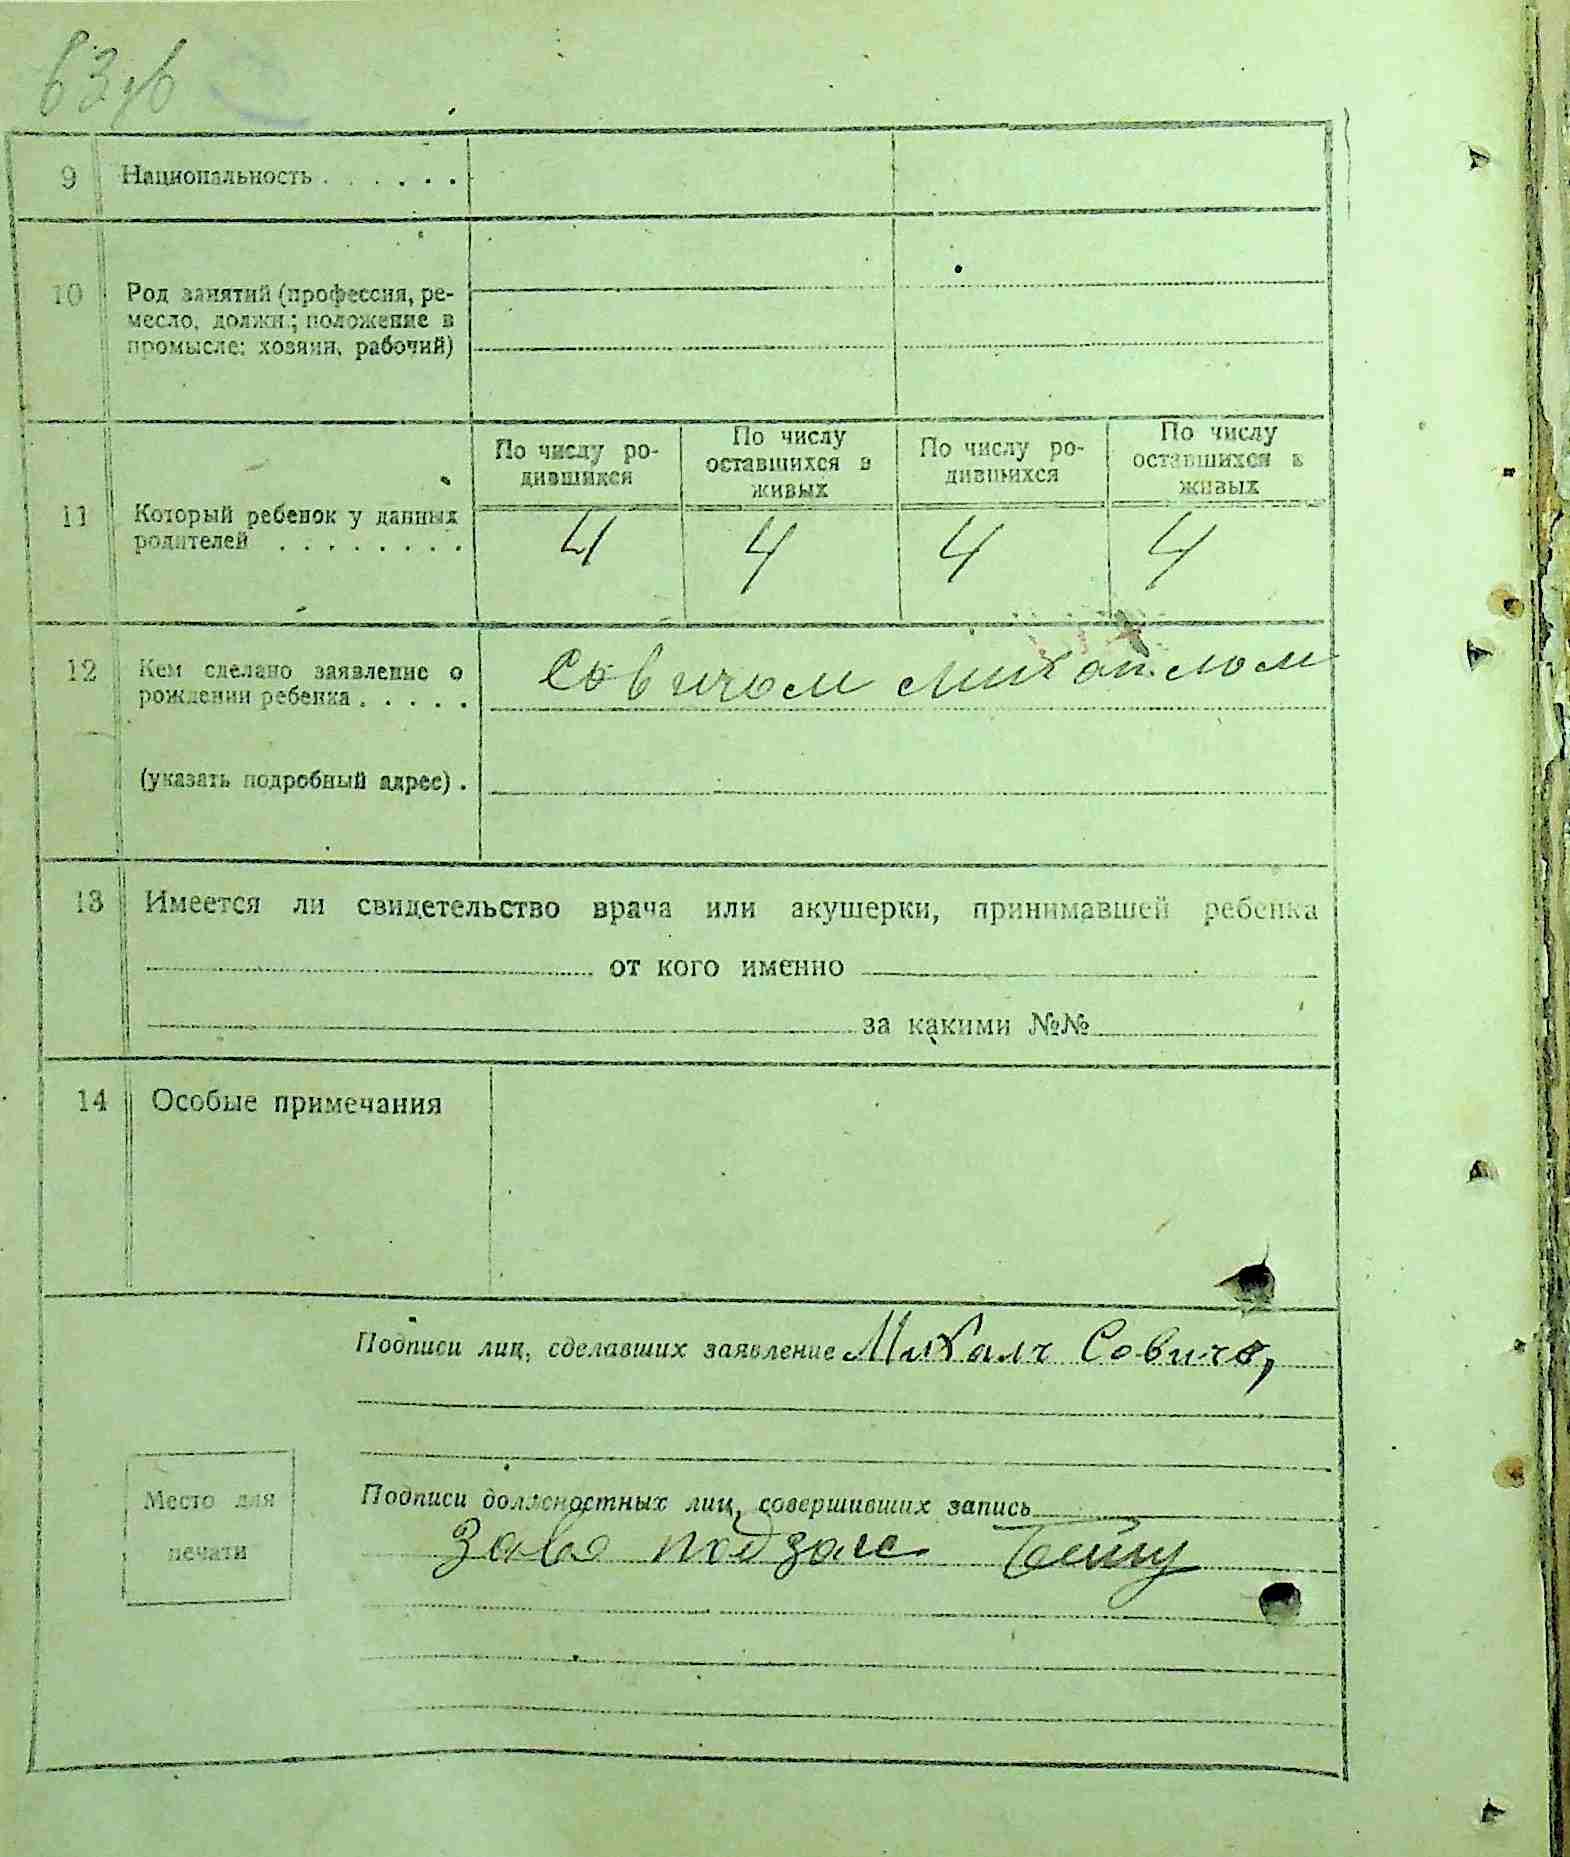 63
9 Национальность . . . . . .
10 Род занятий (профессия, ре-
месло, должн.; положение в
промысле: хозяин, рабочий)
По числу ро-
дившихся
По числу
оставшихся в
живых
По числу ро-
дившихся
По числу
оставшихся в
живых
11 Который ребенок у данных
родителей . . . . . . . .
4 4 4 4
12 Кем сделано заявление о
рождении ребенка . . . . .
Совичом Михаилом
(указать подробный адрес) .
13 Имеется ли свидетельство врача или акушерки, принимавшей ребенка
от кого именно
за какими №№
14 Особые примечания
Подписи лиц, сделавших заявление Михалч Совичо,
Место для
печати
Подписи должностных лиц, совершивших запись
Зав. подзагс